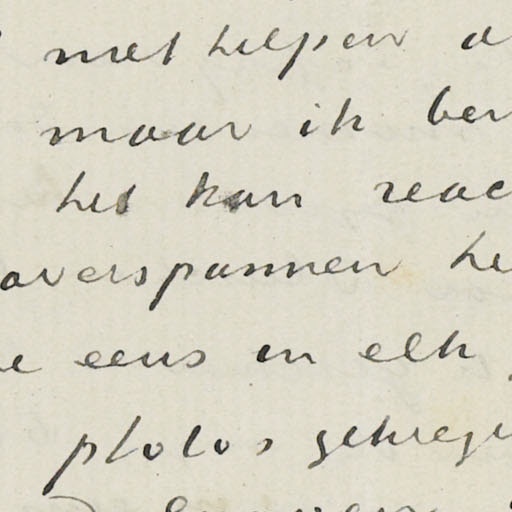 met helpen
maar ik ben
het kan reac
overspannen he
eens en elk
photo's gekrege